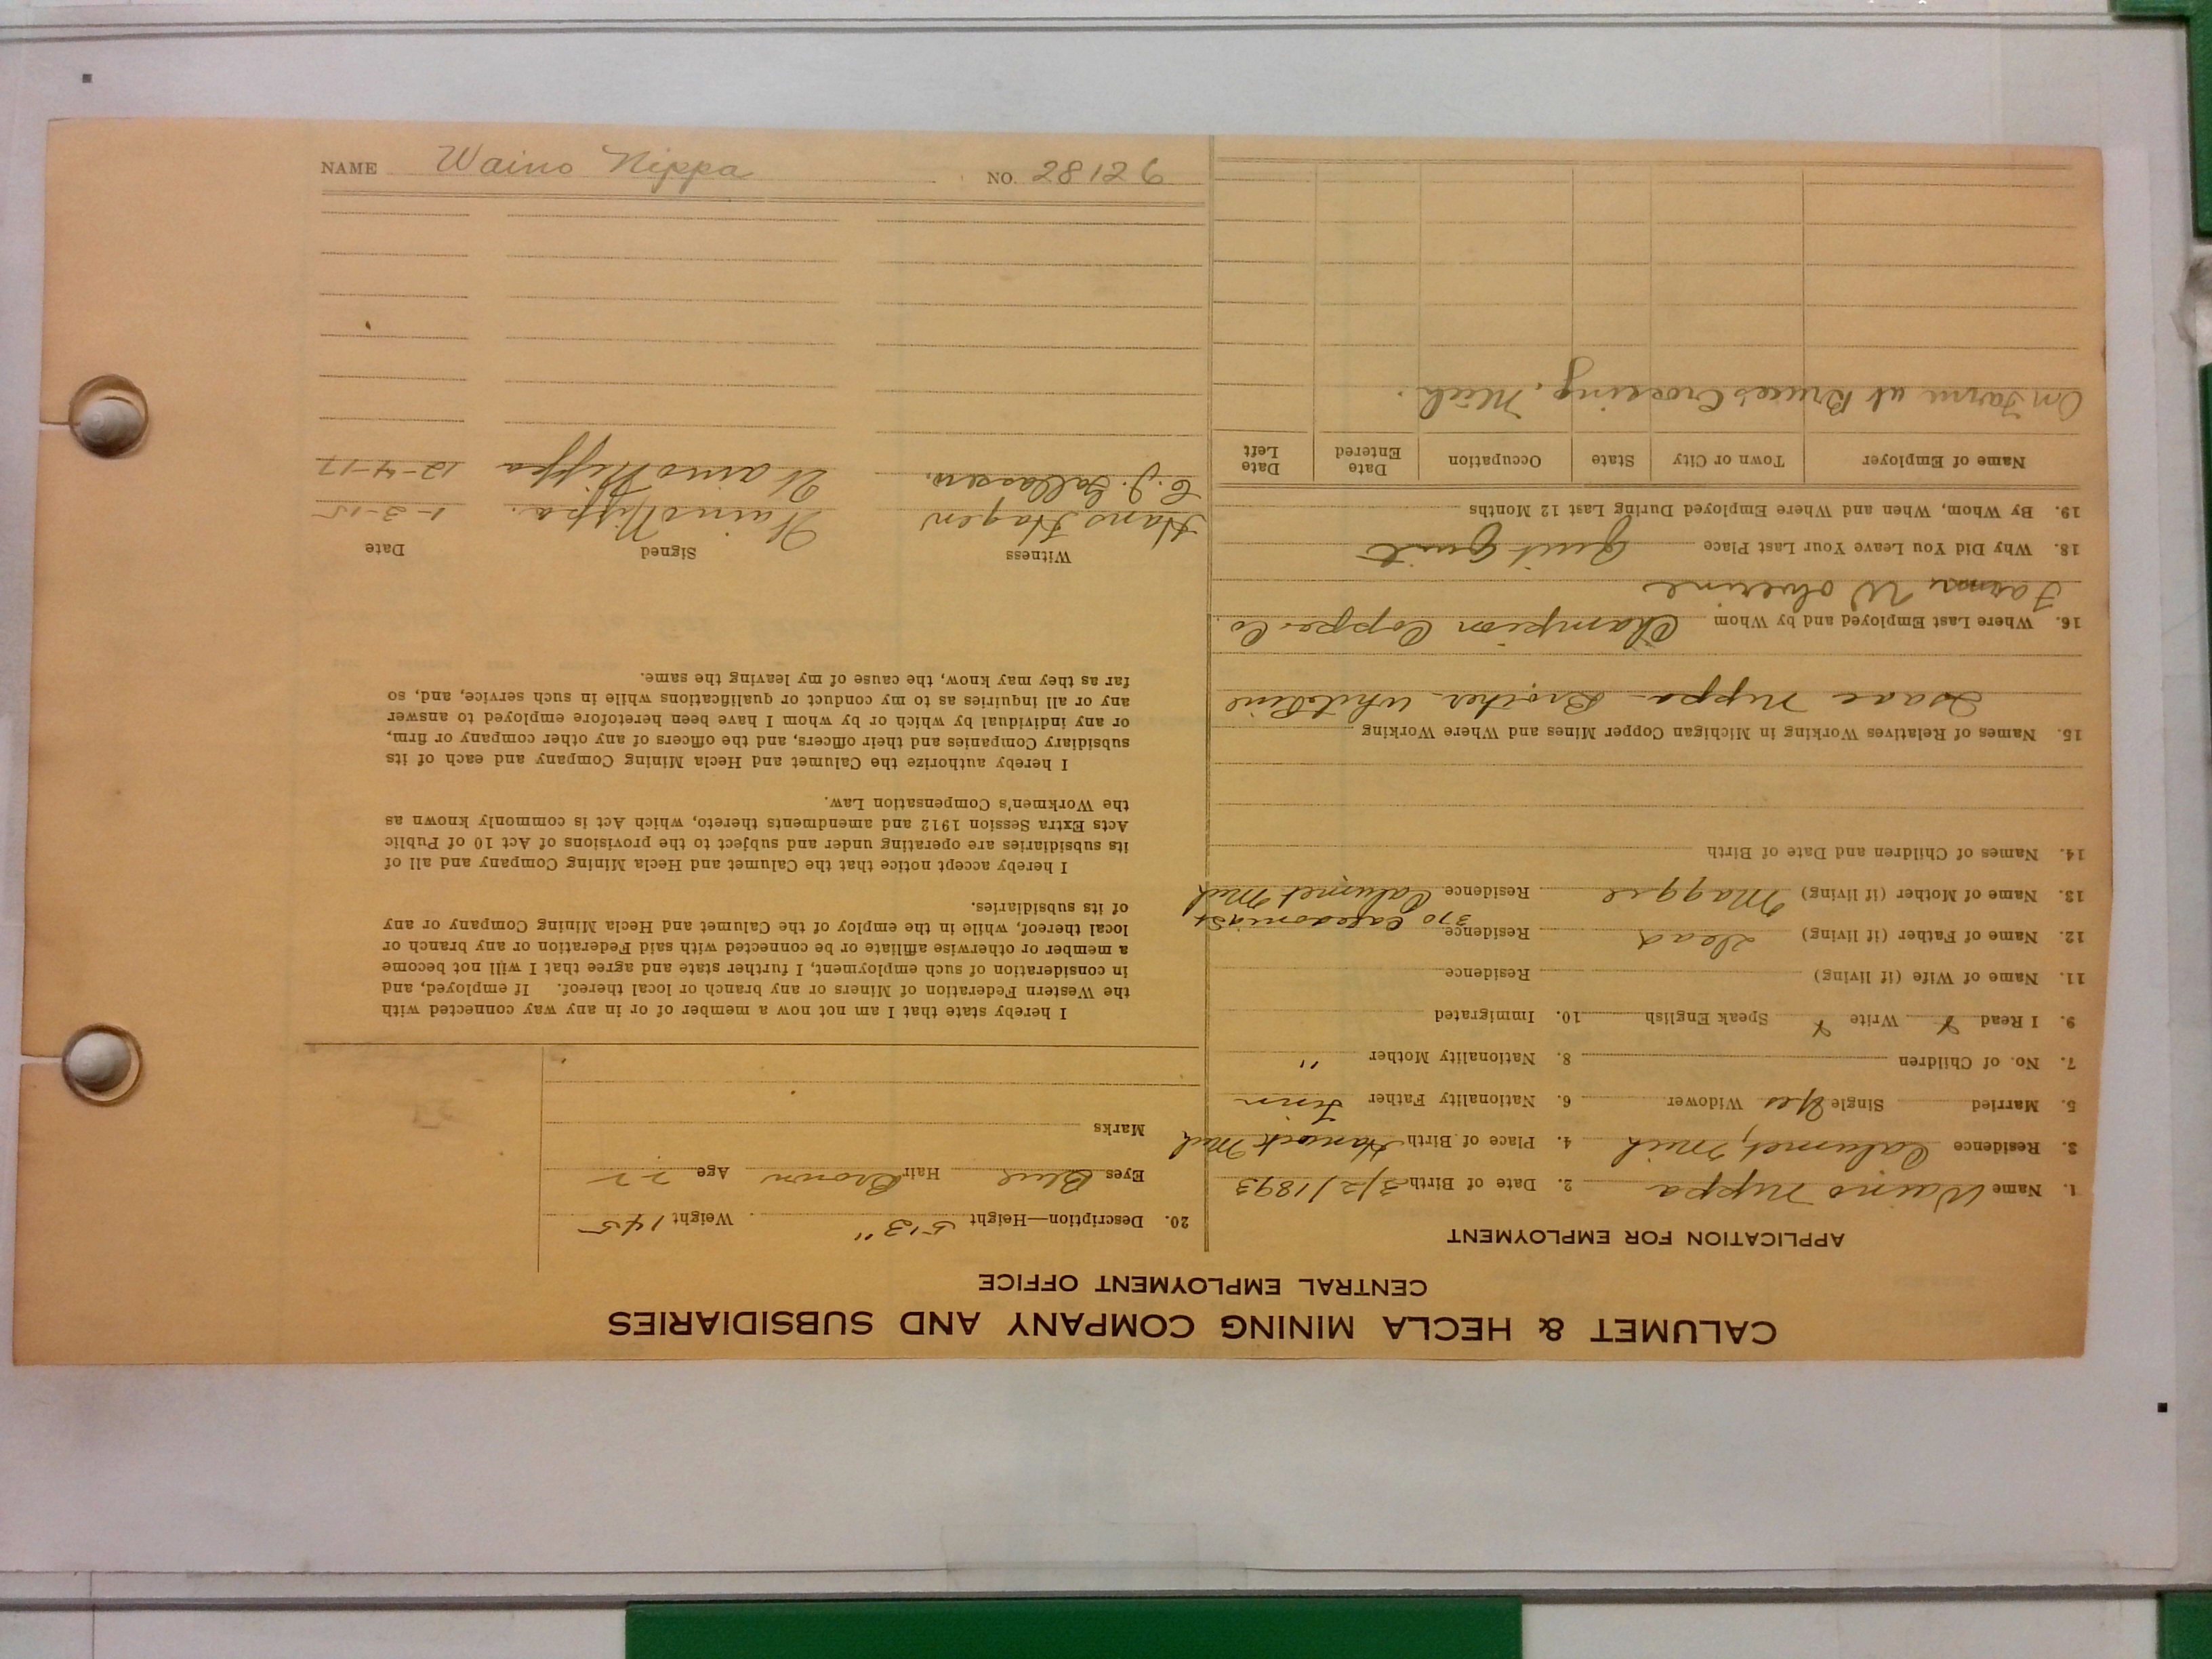 CALUMET & HECLA MINING COMPANY AND SUBSIDIARIES
CENTRAL EMPLOYMENT OFFICE
APPLICATION FOR EMPLOYMENT
1. Name Waino Nippa 2. Date of Birth 3/2/1893
3. Residence Calumet, Mich 4. Place of Birth Hancock Mich
5. Married Single Yes Widower 6. Nationality Father Finn
7. No. of Children 8. Nationality Mother "
9. I Read Write Speak English 10. Immigrated
11. Name of Wife (if living) Residence
12. Name of Father (if living) Dead Residence 370 Caledonia St
13. Name of Mother (if living) Maggie Residence Calumet Mich
14. Names of Children and Date of Birth
15. Names of Relatives Working in Michigan Copper Mines and Where Working
Isaac Nippa - Brother - White Pine
16. Where Last Employed and by Whom Champion Copper Co.
Wolverine
18. Why Did You Leave Your Last Place Quit Quit
19. By Whom, When and Where Employed During Last 12 Months
Name of Employer Town or City State Occupation Date Entered Date Left
On Farm at Bruces Crossing, Mich.
20. Description—Height 5'3" Weight 145
Eyes Blue Hair Brown Age 22
Marks
I hereby state that I am not now a member of or in any way connected with
the Western Federation of Miners or any branch or local thereof. If employed, and
in consideration of such employment, I further state and agree that I will not become
a member or otherwise affiliate or be connected with said Federation or any branch or
local thereof, while in the employ of the Calumet and Hecla Mining Company or any
of its subsidiaries.
I hereby accept notice that the Calumet and Hecla Mining Company and all of
its subsidiaries are operating under and subject to the provisions of Act 10 of Public
Acts Extra Session 1912 and amendments thereto, which Act is commonly known as
the Workmen's Compensation Law.
I hereby authorize the Calumet and Hecla Mining Company and each of its
subsidiary Companies and their officers, and the officers of any other company or firm,
or any individual by which or by whom I have been heretofore employed to answer
any or all inquiries as to my conduct or qualifications while in such service, and, so
far as they may know, the cause of my leaving the same.
Witness Signed Date
Hans Hagen Waino Nippa. 1-3-15
C. J. Waino Nippa 12-4-17
NAME Waino Nippa NO. 28126